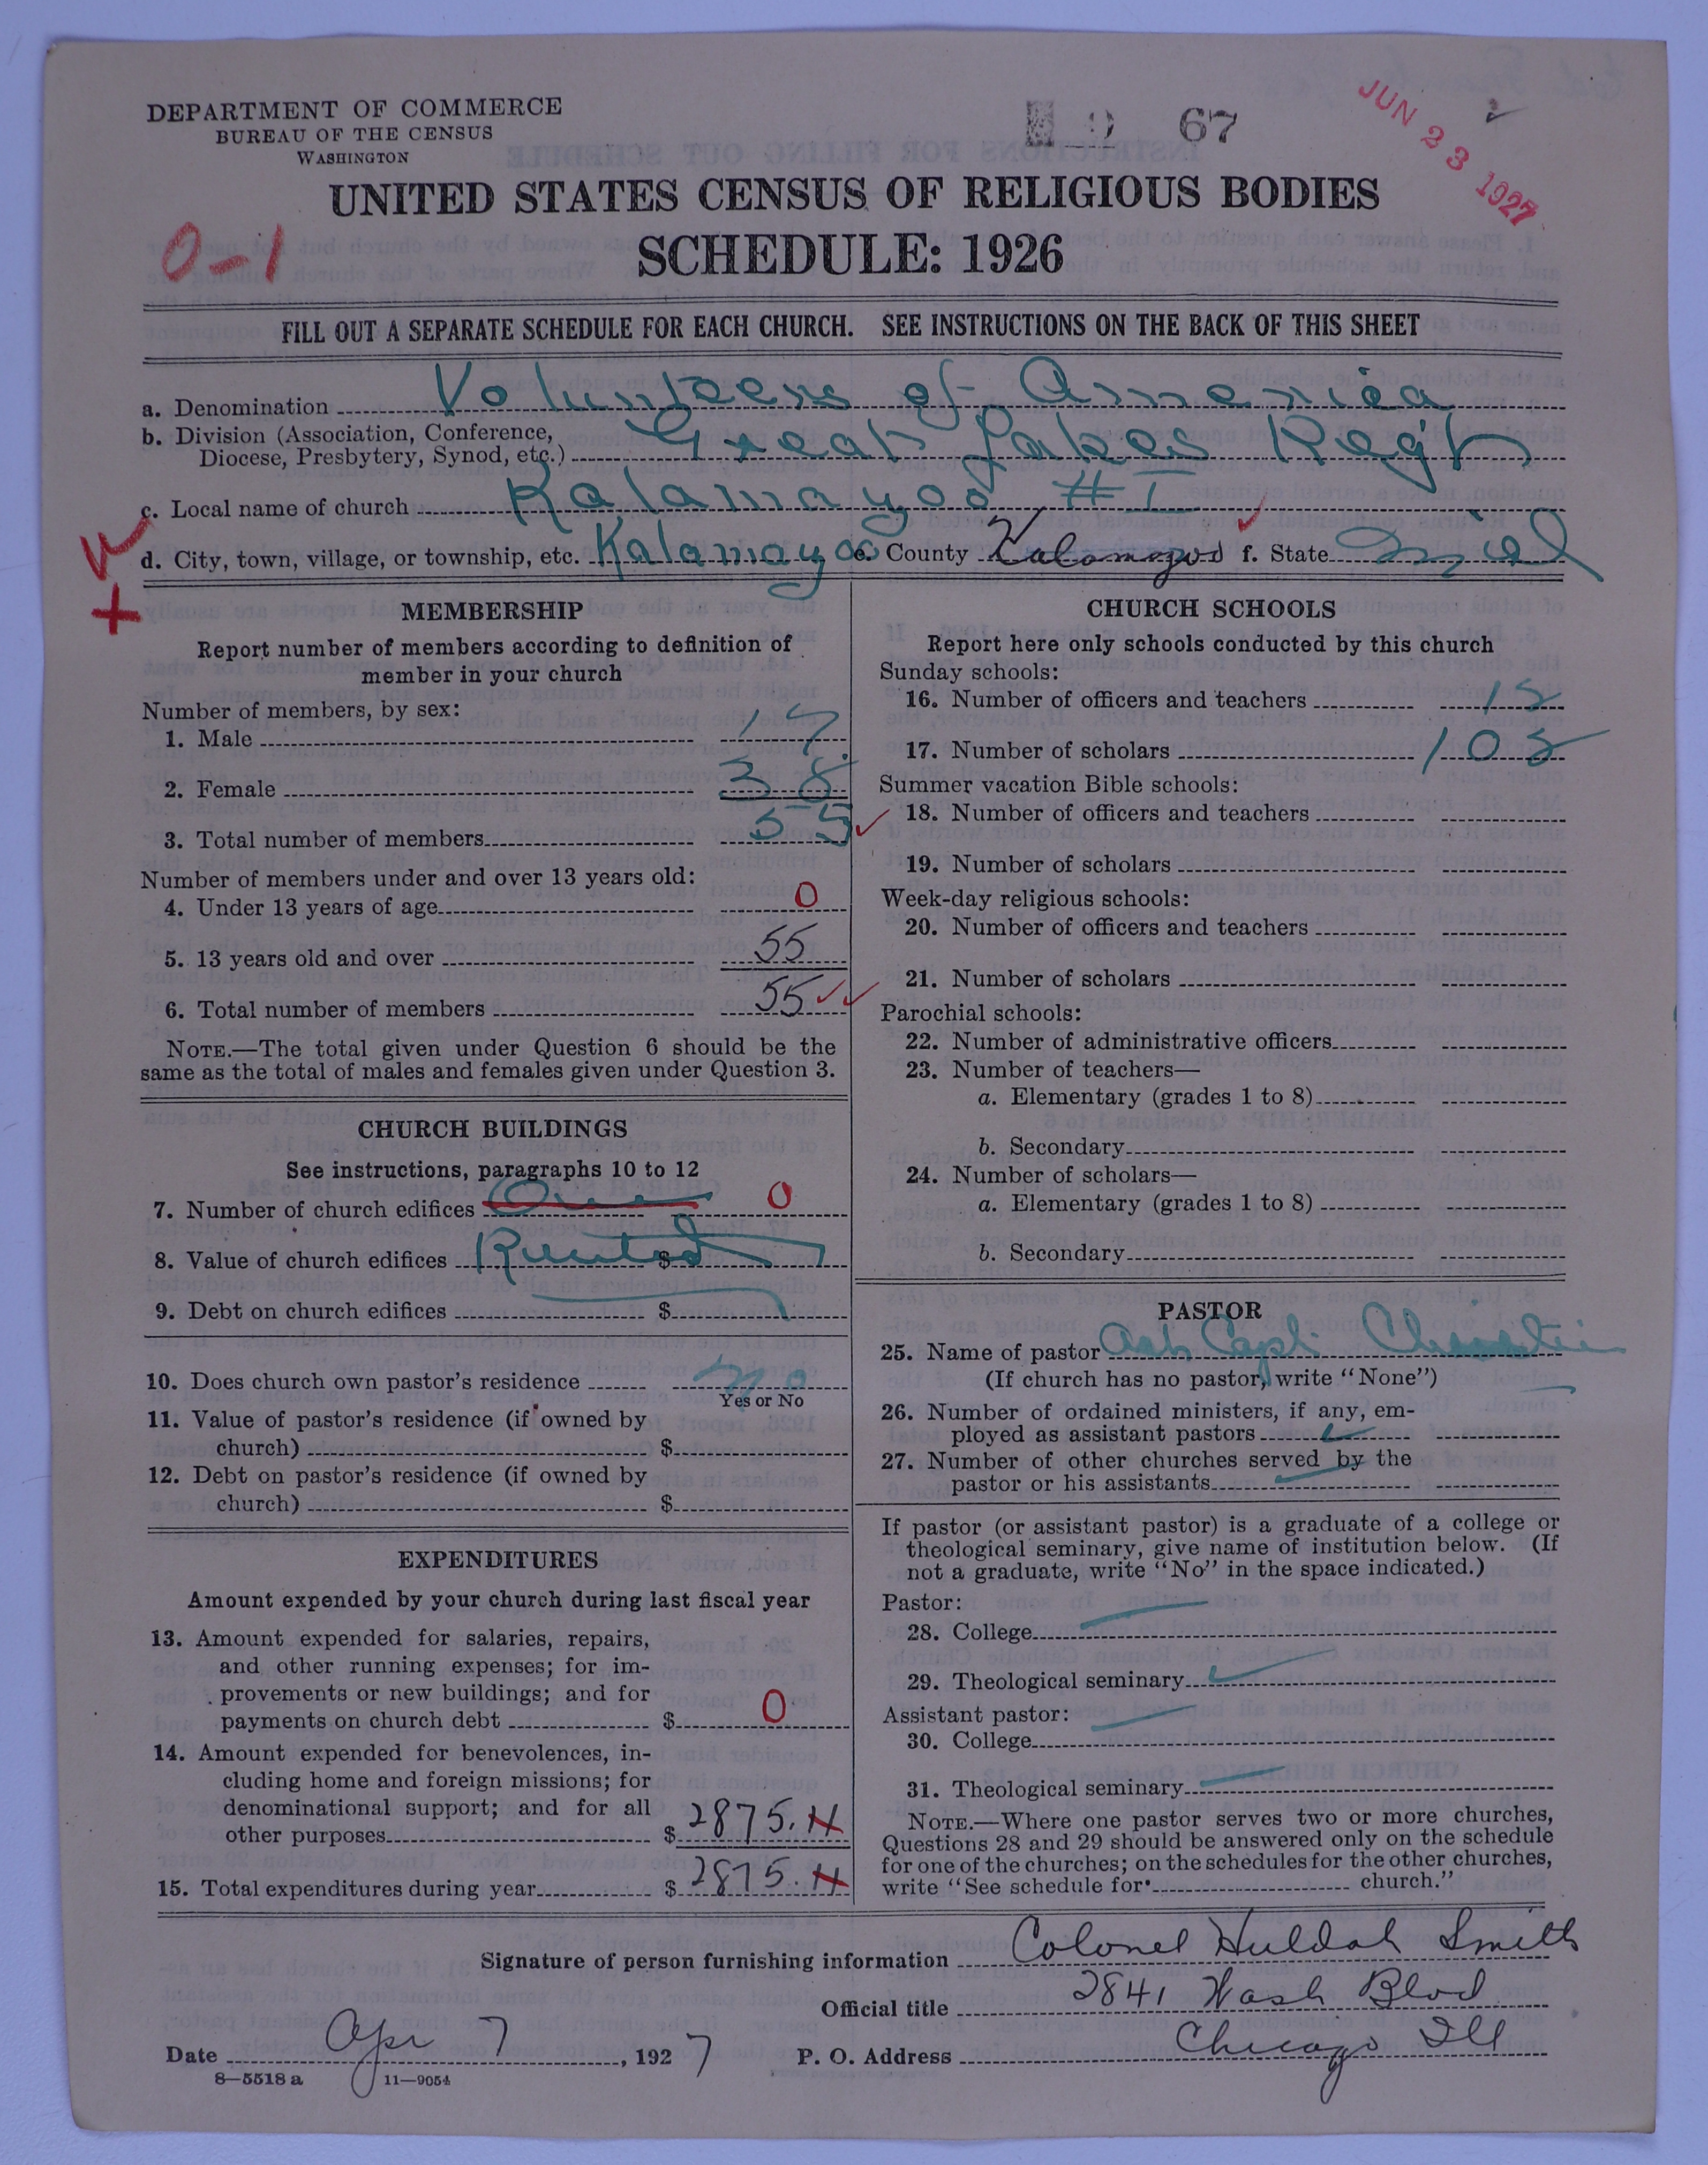 DEPARTMENT OF COMMERCE
BUREAU OF THE CENSUS
WASHINGTON
67
JUN 23 1927
UNITED STATES CENSUS OF RELIGIOUS BODIES
SCHEDULE: 1926
0-1
FILL OUT A SEPARATE SCHEDULE FOR EACH CHURCH. SEE INSTRUCTIONS ON THE BACK OF THIS SHEET
a. Denomination Volunteers of America
b. Division (Association, Conference, Diocese, Presbytery, Synod, etc.) Great Lakes Reg't
c. Local name of church Kalamazoo #1
d. City, town, village, or township, etc. Kalamazoo e. County Kalamazoo f. State Mich
MEMBERSHIP
Report number of members according to definition of
member in your church
Number of members, by sex:
1. Male 17
2. Female 38
3. Total number of members 55
Number of members under and over 13 years old:
4. Under 13 years of age 0
5. 13 years old and over 55
6. Total number of members 55
NOTE.—The total given under Question 6 should be the
same as the total of males and females given under Question 3.
CHURCH BUILDINGS
See instructions, paragraphs 10 to 12
7. Number of church edifices One 0
8. Value of church edifices Rented $
9. Debt on church edifices $
10. Does church own pastor's residence No
Yes or No
11. Value of pastor's residence (if owned by
church) $
12. Debt on pastor's residence (if owned by
church) $
EXPENDITURES
Amount expended by your church during last fiscal year
13. Amount expended for salaries, repairs,
and other running expenses; for im-
provements or new buildings; and for
payments on church debt $ 0
14. Amount expended for benevolences, in-
cluding home and foreign missions; for
denominational support; and for all
other purposes $ 2875.
15. Total expenditures during year $ 2875.
CHURCH SCHOOLS
Report here only schools conducted by this church
Sunday schools:
16. Number of officers and teachers
17. Number of scholars
Summer vacation Bible schools:
18. Number of officers and teachers
19. Number of scholars
Week-day religious schools:
20. Number of officers and teachers
21. Number of scholars
Parochial schools:
22. Number of administrative officers
23. Number of teachers—
a. Elementary (grades 1 to 8)
b. Secondary
24. Number of scholars—
a. Elementary (grades 1 to 8)
b. Secondary
PASTOR
25. Name of pastor Capt.
(If church has no pastor, write "None")
26. Number of ordained ministers, if any, em-
ployed as assistant pastors
27. Number of other churches served by the
pastor or his assistants
If pastor (or assistant pastor) is a graduate of a college or
theological seminary, give name of institution below. (If
not a graduate, write "No" in the space indicated.)
Pastor:
28. College
29. Theological seminary
Assistant pastor:
30. College
31. Theological seminary
NOTE.—Where one pastor serves two or more churches,
Questions 28 and 29 should be answered only on the schedule
for one of the churches; on the schedules for the other churches,
write "See schedule for church."
Signature of person furnishing information Colonel Huldah Smith
Official title 2841 Wash Blvd
Date Apr 7, 1927 P. O. Address Chicago Ill
8—5518 a 11—9054